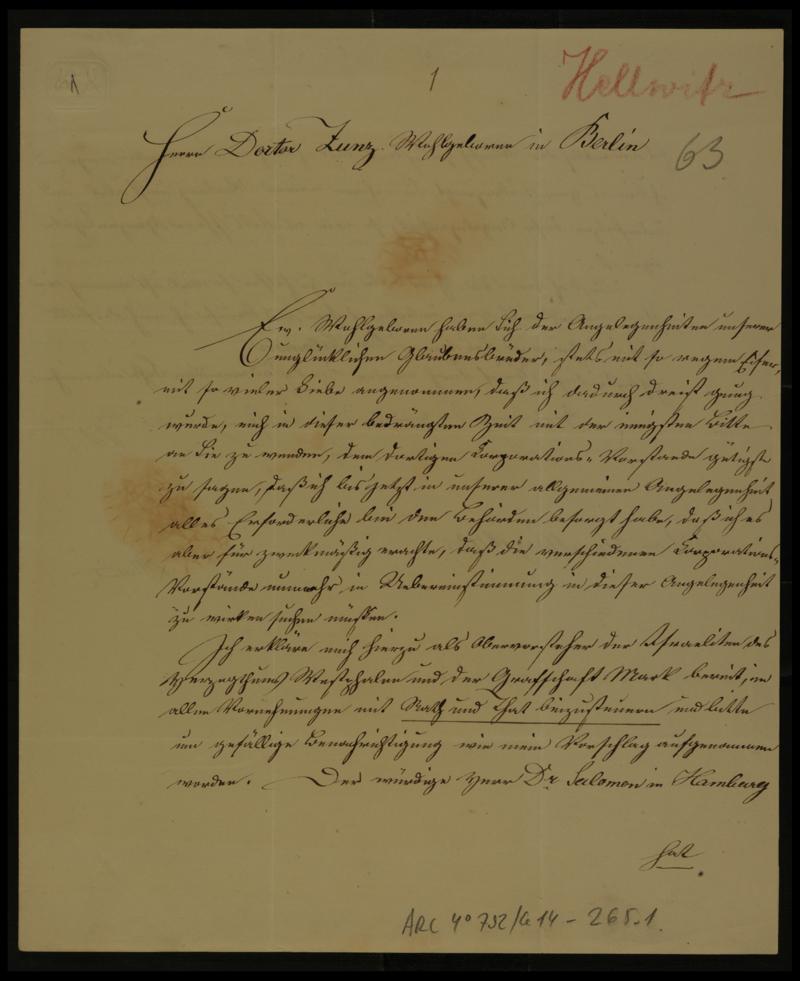 1
Hellwitz
Herrn Doctor Zunz Wohlgeboren in Berlin
63
Ew. Wohlgeboren haben Sich der Angelegenheiten unserer
unglücklichen Glaubensbrüder, stets mit so regem Eifer,
mit so vieler Liebe angenommen, daß ich dadurch dreist genug
wurde, mich in dieser bedrängten Zeit mit der innigsten Bitte
an Sie zu wenden, dem dortigen Corporations-Vorstande gütigst
zu sagen, daß ich bis jetzt in unserer allgemeinen Angelegenheit
alles Erforderliche bei den Behörden besorgt habe, daß ich es
aber für zweckmäßig erachte, daß die verschiedenen Corporations-
Vorstände nunmehr, in Uebereinstimmung in dieser Angelegenheit
zu wirken suchen müssen.
Ich erkläre mich hierzu als Obervorsteher der Israeliten des
Herzogthums Westphalen und der Grafschaft Mark bereit, in
allen Vornehmungen mit Rath und That beizusteuern und bitte
um gefällige Benachrichtigung wie mein Vorschlag aufgenommen
worden. Der würdige Herr Dr. Salomon in Hamburg
hat
ARC 4° 792/G 14 - 265.1